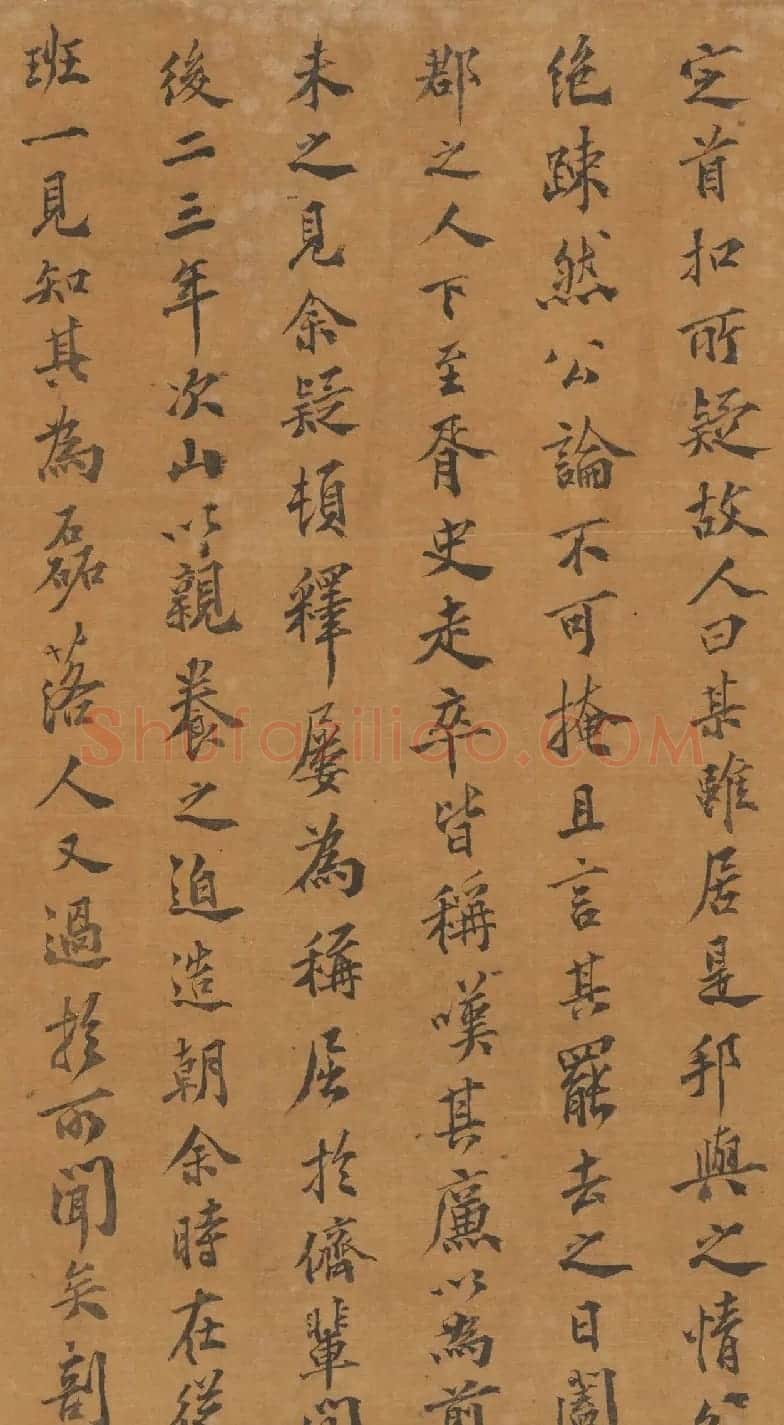 定首扣所疑故人曰某雖居是邦與之情
絕踈然公論不可掩且言其罷去之日闔
郡之人下至胥史走卒皆稱嘆其廉以為前
未之見余疑頓釋屢為稱屈於儕輩間
後二三年次山以親養之迫造朝余時在從
班一見知其為磊落人又過於所聞矣剖
Shufaziliao.COM